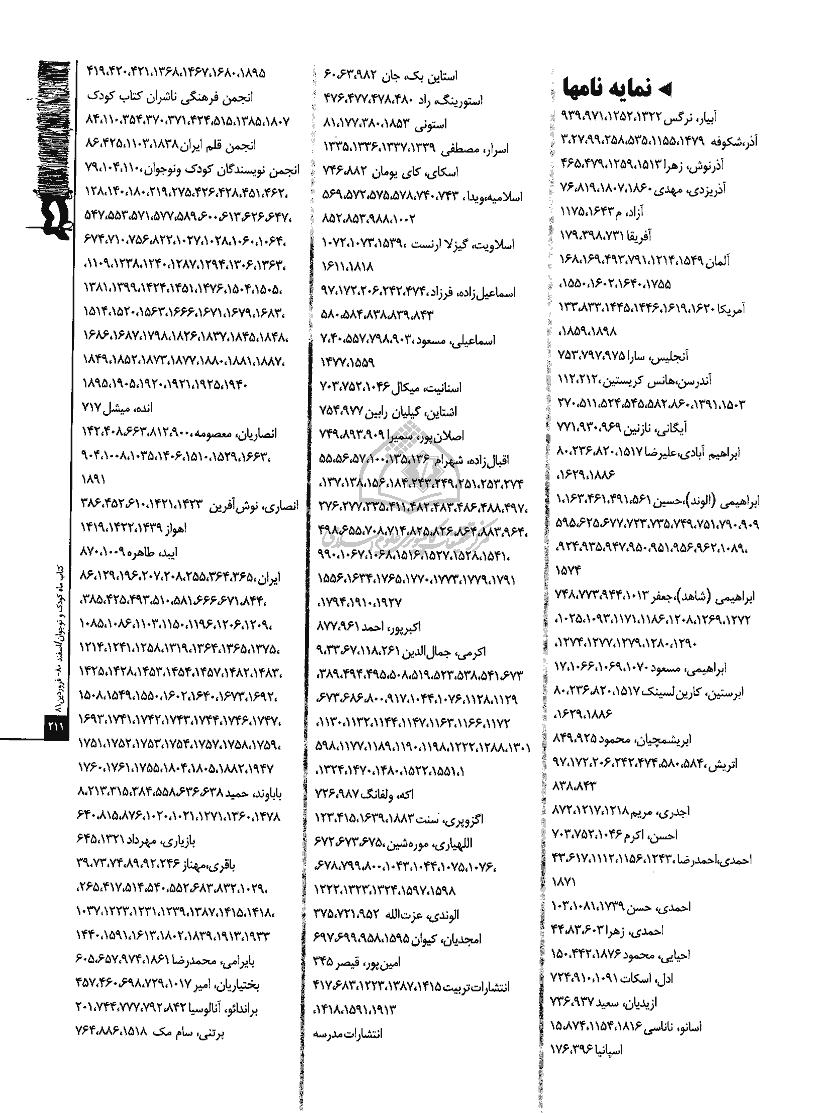 ◄ نمایه نامها
آبیار، نرگس ۹۳۹،۹۷۱،۱۲۵۲،۱۳۲۲
آذر،شکوفه ۳،۲۷،۹۹،۲۵۸،۵۳۵،۱۱۵۵،۱۴۷۹
آذرنوش، زهرا ۴۶۵،۴۷۹،۱۲۵۹،۱۵۱۳
آذریزدی، مهدی ۷۶،۸۱۹،۱۸۰۷،۱۸۶۰
آزاد، م ۱۱۷۵،۱۶۴۳
آفریقا ۱۷۹،۳۹۸،۷۳۱
آلمان ۱۶۸،۱۶۹،۴۹۳،۷۹۱،۱۲۱۴،۱۵۴۹،
۱۵۵۰،۱۶۰۲،۱۶۴۰،۱۷۵۵
آمریکا ۱۳۳،۸۳۳،۱۴۴۵،۱۴۴۶،۱۶۱۹،۱۶۳۰،
۱۸۵۹،۱۸۹۸
آنجلیس، سارا ۷۵۳،۷۹۷،۹۷۵
آندرسن،هانس کریستین، ۱۱۲،۲۱۲،
۳۷۰،۵۱۱،۵۲۴،۵۴۵،۵۸۲،۸۶۰،۱۳۹۱،۱۵۰۳
آیگانی، نازنین ۷۷۱،۹۳۰،۹۶۹
ابراهیم آبادی،علیرضا ۸۰،۲۳۶،۸۲۰،۱۵۱۷،
۱۶۲۹،۱۸۸۶
ابراهیمی (الوند)،حسین ۱،۱۶۳،۴۶۱،۴۹۱،۵۶۱،
۵۹۵،۶۲۵،۶۷۷،۷۲۳،۷۳۵،۷۴۹،۷۵۱،۷۹۰،۹۰۹،
۹۲۴،۹۳۵،۹۴۷،۹۵۰،۹۵۱،۹۵۶،۹۶۲،۱۰۸۹،
۱۵۷۴
ابراهیمی (شاهد)،جعفر ۷۴۸،۷۷۳،۹۴۴،۱۰۱۳،
۱۰۲۵،۱۰۹۳،۱۱۷۱،۱۱۸۶،۱۲۰۸،۱۲۶۹،۱۲۷۲،
۱۲۷۴،۱۲۷۷،۱۲۷۹،۱۲۸۰،۱۲۹۰
ابراهیمی، مسعود ۱۷،۱۰۶۶،۱۰۶۹،۱۰۷۰
ابرستین، کارین‌لسینک ۸۰،۲۳۶،۸۲۰،۱۵۱۷،
۱۶۲۹،۱۸۸۶
ابریشمچیان، محمود ۸۴۹،۹۲۵
اتریش ۹۷،۱۷۲،۲۰۶،۲۴۲،۴۷۴،۵۸۰،۵۸۴،
۸۳۸،۸۴۳
اجدری، مریم ۸۷۲،۱۲۱۷،۱۲۱۸
احسن، اکرم ۷۰۳،۷۵۲،۱۰۴۶
احمدی،احمدرضا ۴۳،۶۱۷،۱۱۱۲،۱۱۵۶،۱۲۴۳،
۱۸۷۱
احمدی، حسن ۱۰۳،۱۰۸۱،۱۷۳۹
احمدی، زهرا ۴۴،۸۳،۶۰۳
احیایی، محمود ۱۵۰،۴۴۲،۱۸۷۶
ادل، اسکات ۷۲۴،۹۱۰،۱۰۹۱
ازیدیان، سعید ۷۳۶،۹۳۷
اسانو، ناناسی ۱۵،۸۷۴،۱۱۵۴،۱۸۱۶
اسپانیا ۱۷۶،۳۹۶
استاین بک، جان ۶۰،۶۳،۹۸۲
استورینگ، راد ۴۷۶،۴۷۷،۴۷۸،۴۸۰
استونی ۸۱،۱۷۷،۳۸۰،۱۸۵۳
اسرار، مصطفی ۱۳۳۵،۱۳۳۶،۱۳۳۷،۱۳۳۹
اسکای، کای یومان ۷۴۶،۸۸۲
اسلامیه،ویدا، ۵۶۹،۵۷۲،۵۷۵،۵۷۸،۷۴۰،۷۴۳،
۸۵۲،۸۵۳،۹۸۸،۱۰۰۲
اسلاویت، گیزلا ارنست ۱۰۷۲،۱۰۷۳،۱۵۳۹،
۱۶۱۱،۱۸۱۸
اسماعیل‌زاده، فرزاد، ۹۷،۱۷۲،۲۰۶،۲۴۲،۴۷۴،
۵۸۰،۵۸۴،۸۳۸،۸۳۹،۸۴۳
اسماعیلی، مسعود ۷،۴۰،۵۵۷،۷۹۸،۹۰۳،
۱۴۷۷،۱۵۵۹
اسنانیت، میکال ۷۰۳،۷۵۲،۱۰۴۶
اشتاین، گیلیان رابین ۷۵۴،۹۷۷
اصلان‌پور، سمیرا ۷۴۹،۸۹۳،۹۰۹
اقبال‌زاده، شهرام ۵۵،۵۶،۵۷،۱۰۰،۱۳۵،۱۳۶،
۱۳۷،۱۳۸،۱۵۶،۱۸۴،۲۴۳،۲۴۹،۲۵۱،۲۵۳،۲۷۴،
۲۷۶،۲۷۷،۳۳۵،۴۱۱،۴۸۲،۴۸۳،۴۸۶،۴۸۸،۴۹۷،
۴۹۸،۶۵۵،۷۰۸،۷۱۴،۸۲۵،۸۲۶،۸۶۴،۸۸۳،۹۶۴،
۹۹۰،۱۰۶۷،۱۰۶۸،۱۵۱۶،۱۵۲۷،۱۵۲۸،۱۵۴۱،
۱۵۵۶،۱۶۳۴،۱۷۶۵،۱۷۷۰،۱۷۷۳،۱۷۷۹،۱۷۹۱،
۱۷۹۴،۱۹۱۰،۱۹۲۷
اکبرپور، احمد ۸۷۷،۹۶۱
اکرمی، جمال‌الدین ۹،۳۳،۶۷،۱۱۸،۲۶۱،
۳۸۹،۴۹۴،۴۹۵،۵۰۸،۵۱۹،۵۲۳،۵۳۸،۵۴۱،۶۷۳،
۶۷۳،۶۸۶،۸۰۰،۹۱۷،۱۰۴۴،۱۰۷۶،۱۱۲۸،۱۱۲۹،
۱۱۳۰،۱۱۳۲،۱۱۴۴،۱۱۴۷،۱۱۶۳،۱۱۶۶،۱۱۷۲،
۵۹۸،۱۱۷۷،۱۱۸۹،۱۱۹۰،۱۱۹۸،۱۲۲۲،۱۲۸۸،۱۳۰۱،
۱۳۲۴،۱۴۷۰،۱۴۸۰،۱۵۲۲،۱۵۵۱،۱
اکه، ولفانگ ۷۲۶،۹۸۷
اگزوپری، سنت ۱۲۳،۴۱۵،۱۶۳۹،۱۸۸۳
اللهیاری، موره‌شین ۶۷۲،۶۷۳،۶۷۵،
۶۷۸،۷۹۹،۸۰۰،۱۰۴۳،۱۰۴۴،۱۰۷۵،۱۰۷۶،
۱۲۲۲،۱۳۲۳،۱۳۲۴،۱۵۹۷،۱۵۹۸
الوندی، عزت‌الله ۳۷۵،۷۲۱،۹۵۲
امجدیان، کیوان ۶۹۷،۶۹۹،۹۵۸،۱۵۹۵
امین‌پور، قیصر ۳۴۵
انتشارات تربیت ۴۱۷،۶۸۳،۱۲۲۳،۱۳۸۷،۱۴۱۵،
۱۴۱۸،۱۵۹۱،۱۹۱۳
انتشارات مدرسه
۴۱۹،۴۲۰،۴۲۱،۱۳۶۸،۱۴۶۷،۱۶۸۰،۱۸۹۵
انجمن فرهنگی ناشران کتاب کودک
۸۴،۱۱۰،۳۵۴،۳۷۰،۳۷۱،۴۲۴،۵۱۵،۱۳۸۵،۱۸۰۷
انجمن قلم ایران ۸۶،۴۲۵،۱۱۰۳،۱۸۳۸
انجمن نویسندگان کودک ونوجوان، ۷۹،۱۰۴،۱۱۰،
۱۲۸،۱۴۰،۱۸۰،۲۱۹،۲۷۵،۴۲۶،۴۲۸،۴۵۱،۴۶۲،
۵۴۷،۵۵۳،۵۷۱،۵۷۷،۵۸۹،۶۰۰،۶۱۳،۶۲۶،۶۴۷،
۶۷۴،۷۱۰،۷۵۶،۸۲۲،۱۰۲۷،۱۰۲۸،۱۰۶۰،۱۰۶۴،
۱۱۰۹،۱۲۳۸،۱۲۴۰،۱۲۸۷،۱۲۹۴،۱۳۰۶،۱۳۶۳،
۱۳۸۱،۱۳۹۹،۱۴۲۴،۱۴۵۱،۱۴۷۶،۱۵۰۴،۱۵۰۵،
۱۵۱۴،۱۵۲۰،۱۵۶۳،۱۶۶۶،۱۶۷۱،۱۶۷۹،۱۶۸۳،
۱۶۸۶،۱۶۸۷،۱۷۹۸،۱۸۲۶،۱۸۳۷،۱۸۴۵،۱۸۴۸،
۱۸۴۹،۱۸۵۲،۱۸۷۳،۱۸۷۷،۱۸۸۰،۱۸۸۱،۱۸۸۷،
۱۸۹۵،۱۹۰۵،۱۹۲۰،۱۹۲۱،۱۹۲۵،۱۹۴۰
انده، میشل ۷۱۷
انصاریان، معصومه، ۱۴۲،۴۰۸،۶۶۳،۸۱۲،۹۰۰،
۹۰۴،۱۰۰۸،۱۰۳۵،۱۴۰۶،۱۵۱۰،۱۵۲۹،۱۶۶۳،
۱۸۹۱
انصاری، نوش‌آفرین ۳۸۶،۴۵۲،۶۱۰،۱۴۲۱،۱۴۲۳
اهواز ۱۴۱۹،۱۴۲۲،۱۴۳۹
ایبد، طاهره ۸۷۰،۱۰۰۹
ایران ۸۶،۱۲۹،۱۹۶،۲۰۷،۲۰۸،۲۵۵،۳۶۴،۳۶۵،
۳۸۵،۴۲۵،۴۹۳،۵۱۰،۵۸۱،۶۶۶،۶۷۱،۸۴۴،
۱۰۸۵،۱۰۸۶،۱۱۰۳،۱۱۵۰،۱۱۹۶،۱۲۰۶،۱۲۰۹،
۱۲۱۴،۱۲۴۱،۱۲۵۸،۱۳۱۹،۱۳۶۴،۱۳۶۵،۱۳۷۵،
۱۴۲۵،۱۴۲۸،۱۴۵۳،۱۴۵۴،۱۴۵۷،۱۴۸۲،۱۴۸۳،
۱۵۰۸،۱۵۴۹،۱۵۵۰،۱۶۰۲،۱۶۴۰،۱۶۷۳،۱۶۹۲،
۱۶۹۳،۱۷۴۱،۱۷۴۲،۱۷۴۳،۱۷۴۴،۱۷۴۶،۱۷۴۷،
۱۷۵۱،۱۷۵۲،۱۷۵۳،۱۷۵۴،۱۷۵۷،۱۷۵۸،۱۷۵۹،
۱۷۶۰،۱۷۶۱،۱۷۵۵،۱۸۰۴،۱۸۰۵،۱۸۸۲،۱۹۴۷
باباوند، حمید ۸،۲۱۳،۳۱۵،۳۸۴،۵۵۸،۶۳۶،۶۳۸،
۶۴۰،۸۱۵،۸۷۶،۱۰۲۰،۱۰۲۱،۱۲۷۱،۱۳۶۰،۱۴۷۸
بازیاری، مهرداد ۶۴۵،۱۳۲۱
باقری،مهناز ۳۹،۷۳،۷۴،۸۹،۹۲،۲۴۶،
۲۶۵،۴۱۷،۵۱۴،۵۴۰،۵۵۲،۶۸۳،۸۳۲،۱۰۲۹،
۱۰۳۷،۱۲۲۳،۱۲۳۱،۱۲۳۹،۱۳۸۷،۱۴۱۵،۱۴۱۸،
۱۴۴۰،۱۵۹۱،۱۶۱۳،۱۸۰۲،۱۸۳۹،۱۹۱۳،۱۹۳۳
بایرامی، محمدرضا ۶۰۵،۶۵۷،۹۷۴،۱۸۶۱
بختیاریان، امیر ۴۵۷،۴۶۰،۶۹۸،۷۲۹،۱۰۱۷
براندائو، آنالوسیا ۲۰۱،۷۴۴،۷۷۷،۷۹۲،۸۴۲
برتنی، سام مک ۷۶۴،۸۸۶،۱۵۱۸
کتاب ماه کودک و نوجوان/اسفند ۸۰- فروردین۸۱
۲۱۱